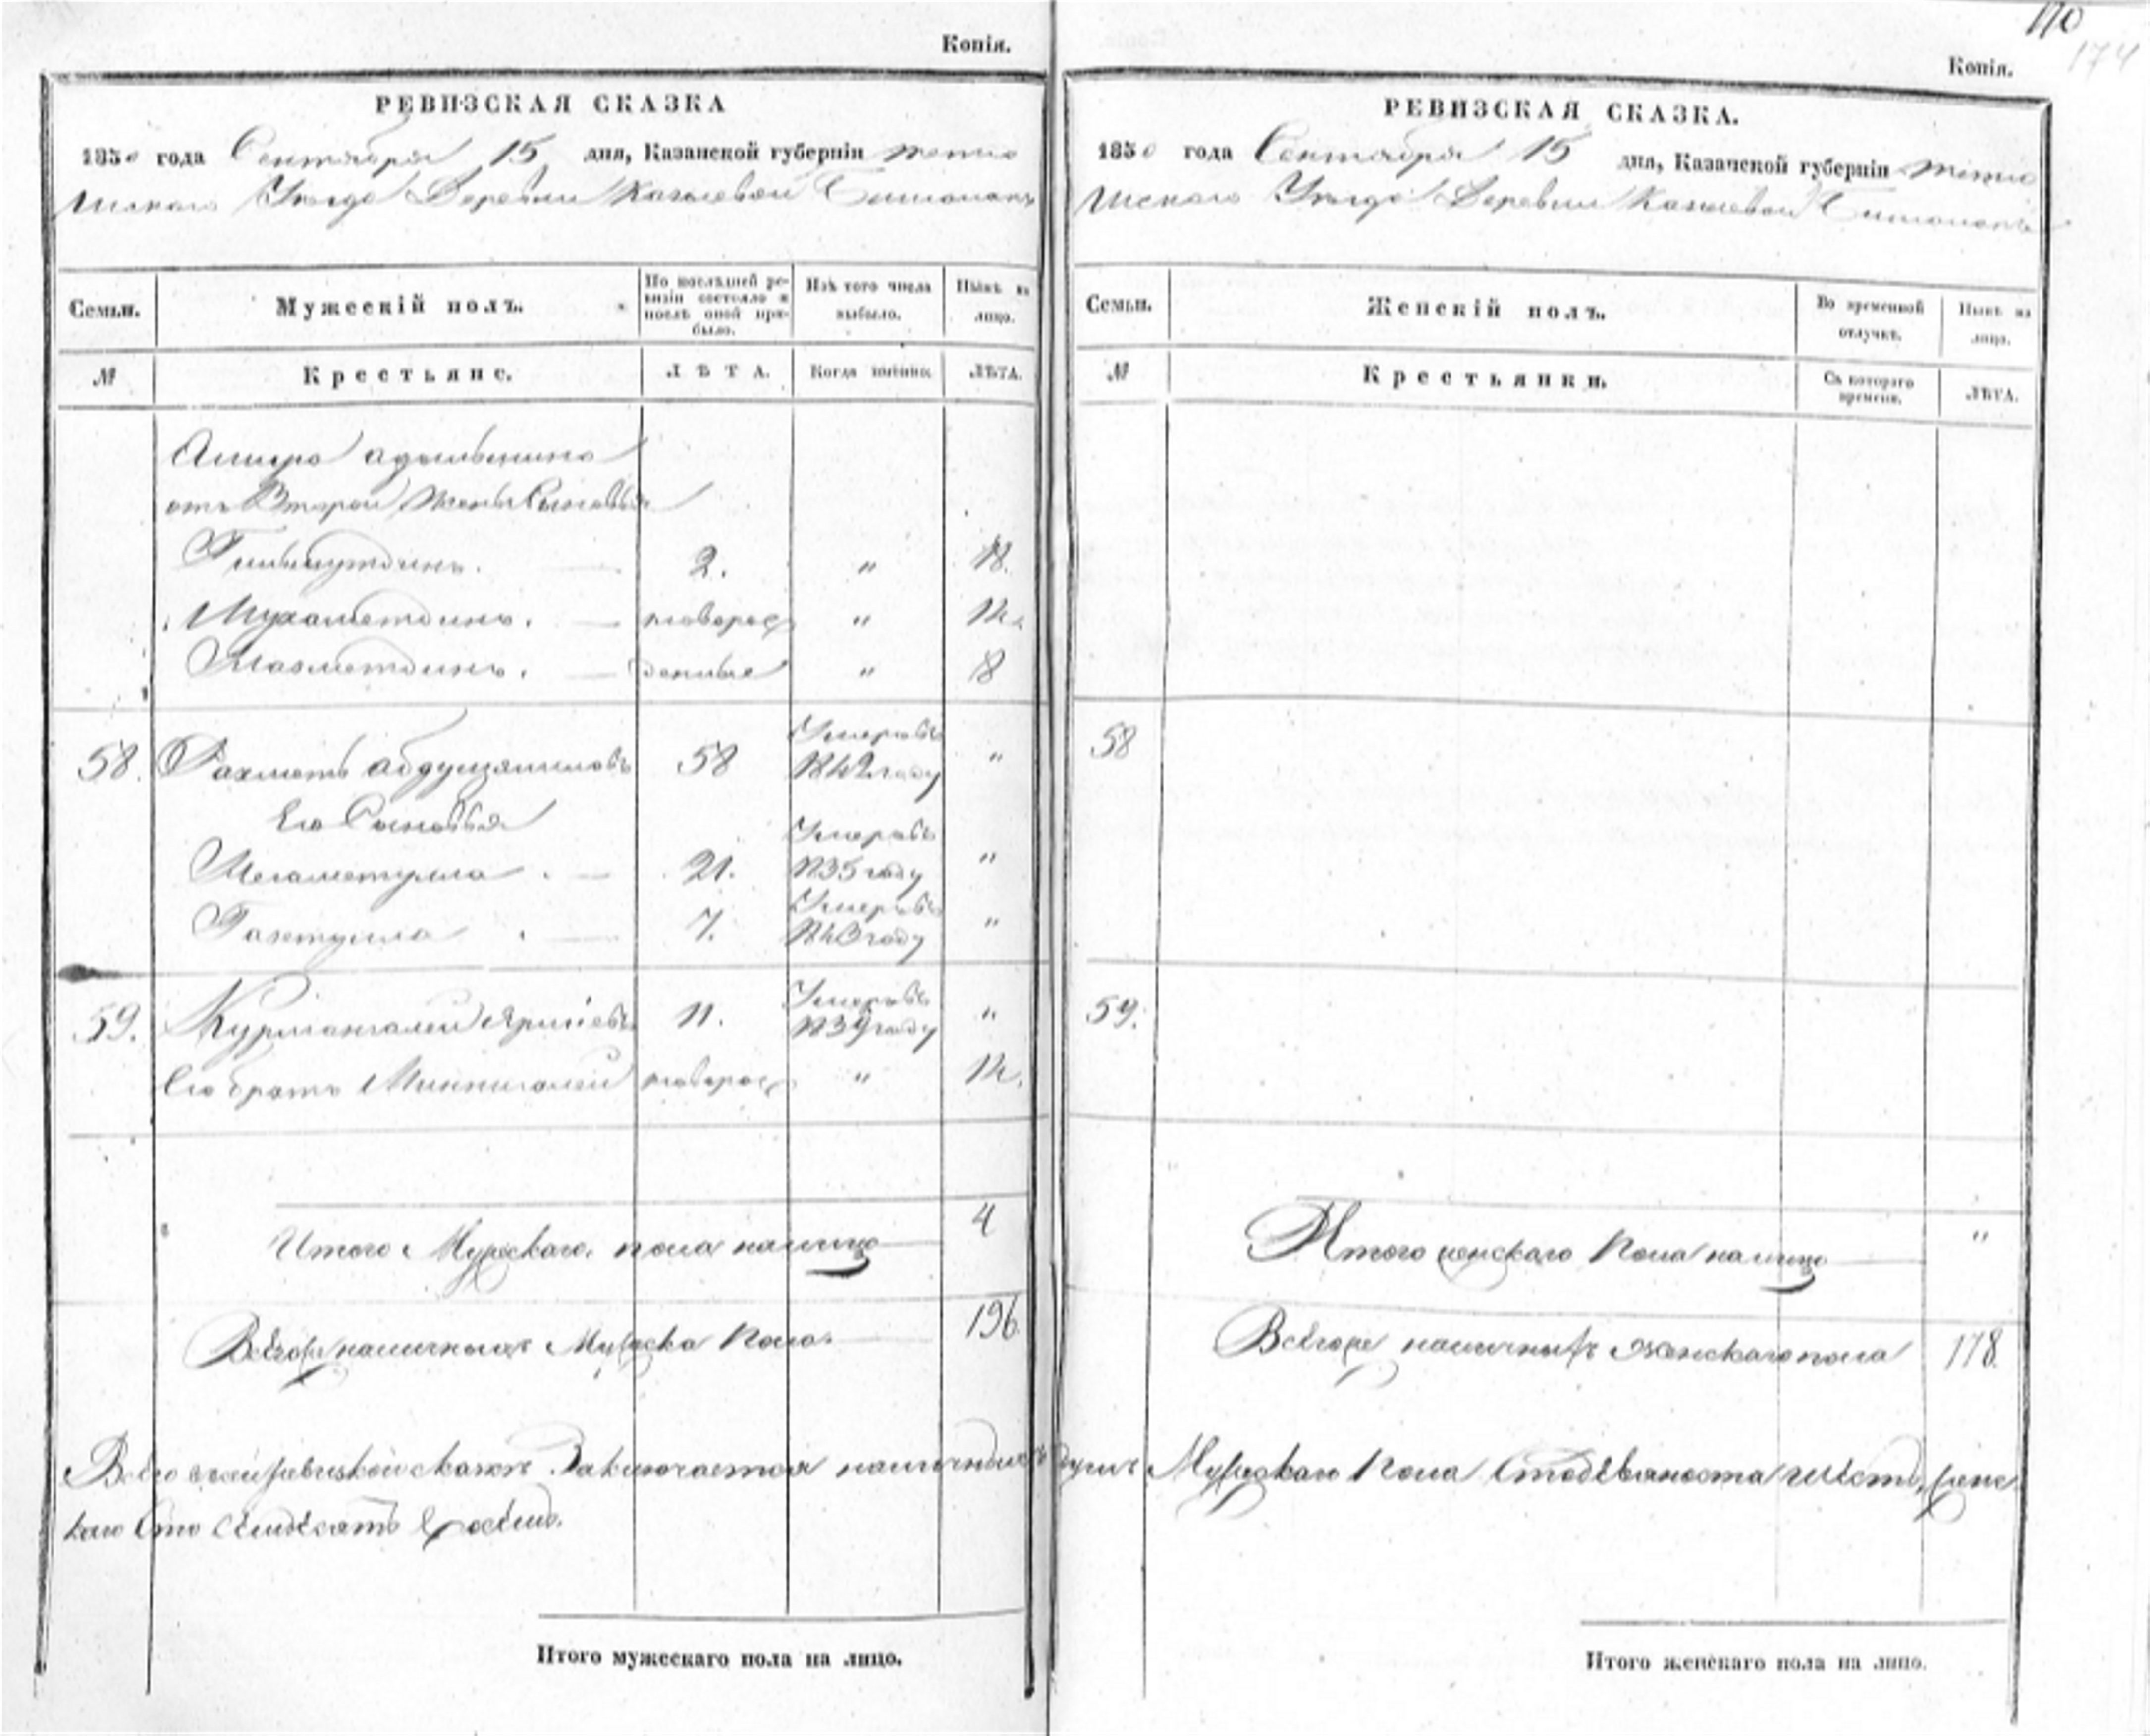 Копія.
РЕВИЗСКАЯ СКАЗКА
1850 года Сентября 15 дня, Казанской губерніи тетю
шскаго Уезда Деревни
Семьи.
Мужескій полъ.
По послѣдней ре-
визіи состояло и
послѣ оной при-
было.
Изъ того числа
выбыло.
Нынѣ на
лицо.
№
Крестьяне.
ЛѢТА.
Когда именно.
ЛѢТА.
отъ Второй жены Сыновья
2. " 18.
Мухаметдинъ. — новорож " 14.
— денные " 8
58. Рахметъ 58 Умеръ въ 1842 году "
Его Сыновья
21. Умеръ въ 1835 году "
7. Умеръ въ 1843 году "
59. 11. Умеръ въ 1839 году "
Его братъ Миннигалей новорож " 14.
Итого Мужскаго пола налицо 4
Всего же наличныхъ Мужска пола. 196
Всего въ сей ревизской сказке Заключается наличныхъ душъ Мужскаго Пола Сто девяноста шесть, женс
каго Сто семдесятъ восемь.
Итого мужескаго пола на лицо.
170
174
Копія.
РЕВИЗСКАЯ СКАЗКА.
1850 года Сентября 15 дня, Казанской губерніи тетю
шскаго Уезда Деревни
Семьи.
Женскій полъ.
Во временной
отлучкѣ.
Нынѣ на
лицо.
№
Крестьянки.
Съ котораго
времени.
ЛѢТА.
58
59.
Итого женскаго Пола налицо "
Всего же наличныхъ женскаго пола 178.
Итого женскаго пола на лицо.